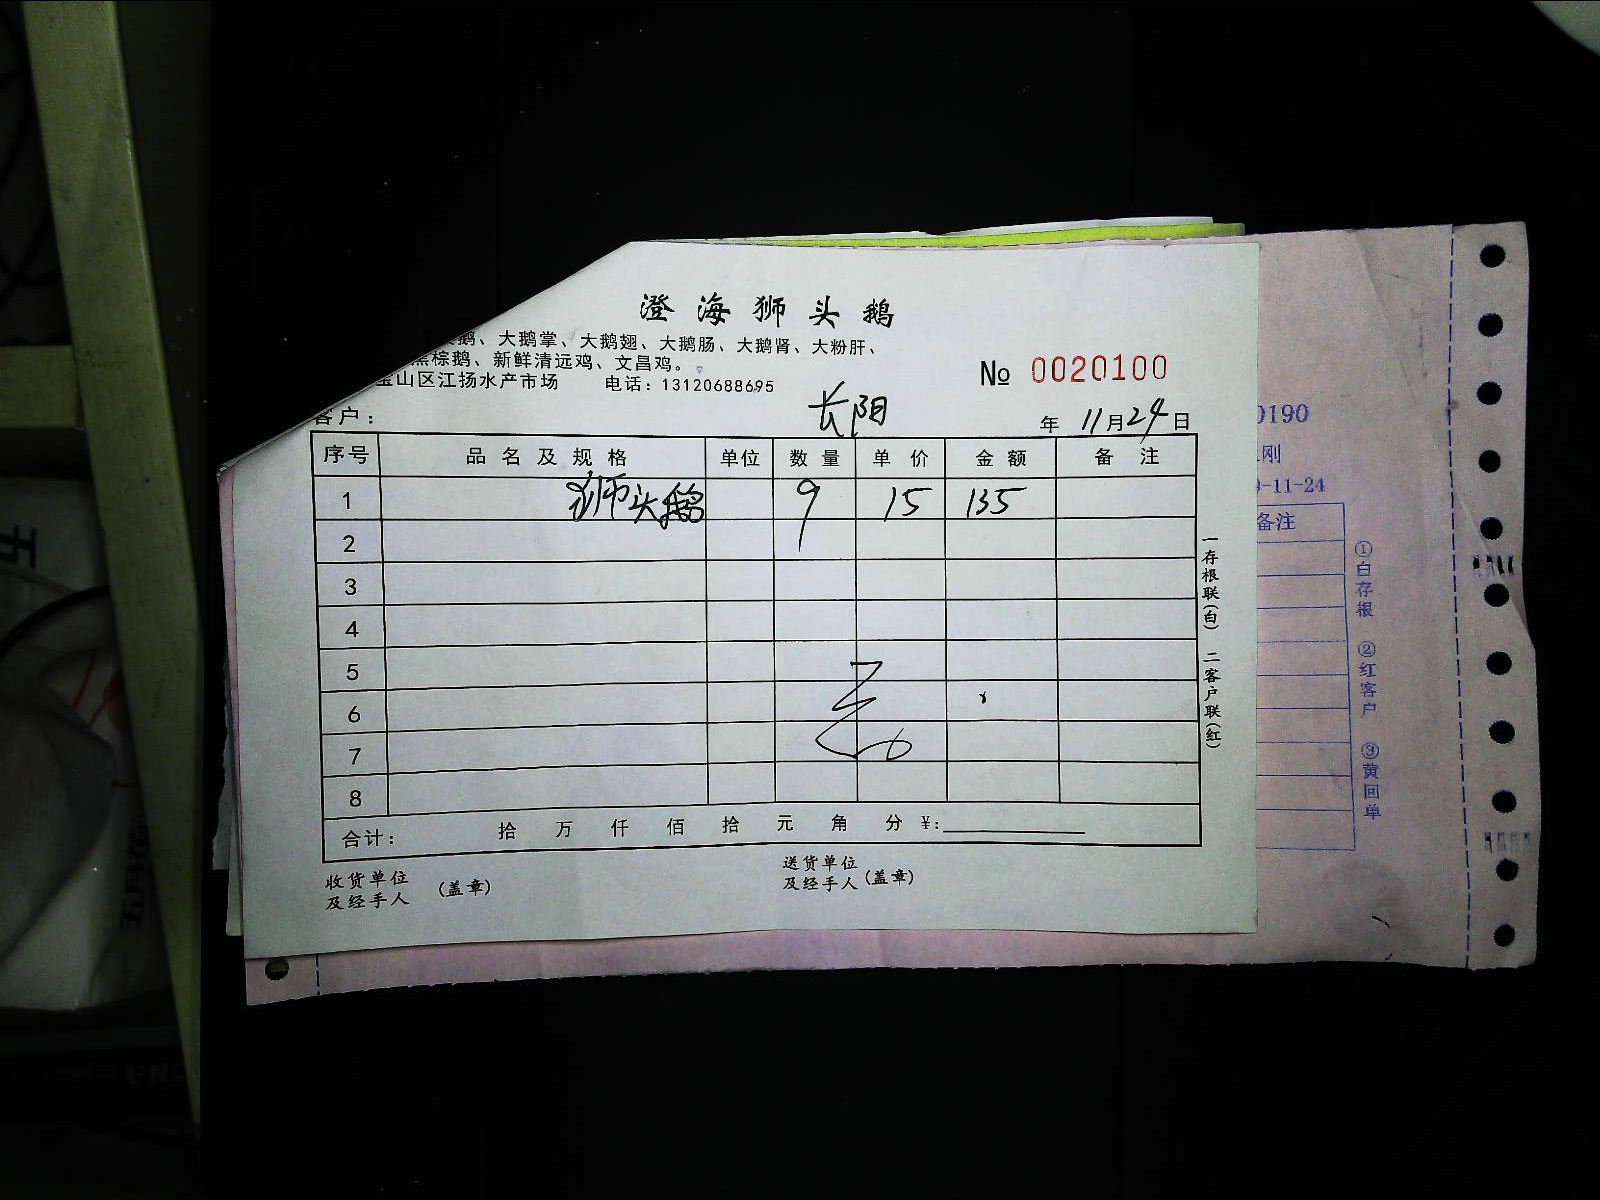 澄海狮头鹅
鹅、大鹅掌、大鹅翅、大鹅肠、大鹅肾、大粉肝、
黑棕鹅、新鲜清远鸡、文昌鸡。
宝山区江扬水产市场 电话：13120688695
№ 0020100
客户： 长阳 年 11月24日
序号 品名及规格 单位 数量 单价 金额 备注
1 狮头鹅 9 15 135
2
3
4
5
6
7
8
合计： 拾 万 仟 佰 拾 元 角 分 ¥：
收货单位
及经手人 （盖章）
送货单位
及经手人（盖章）
一存根联（白） 二客户联（红）
0190
刚
-11-24
备注
①白存根 ②红客户 ③黄回单